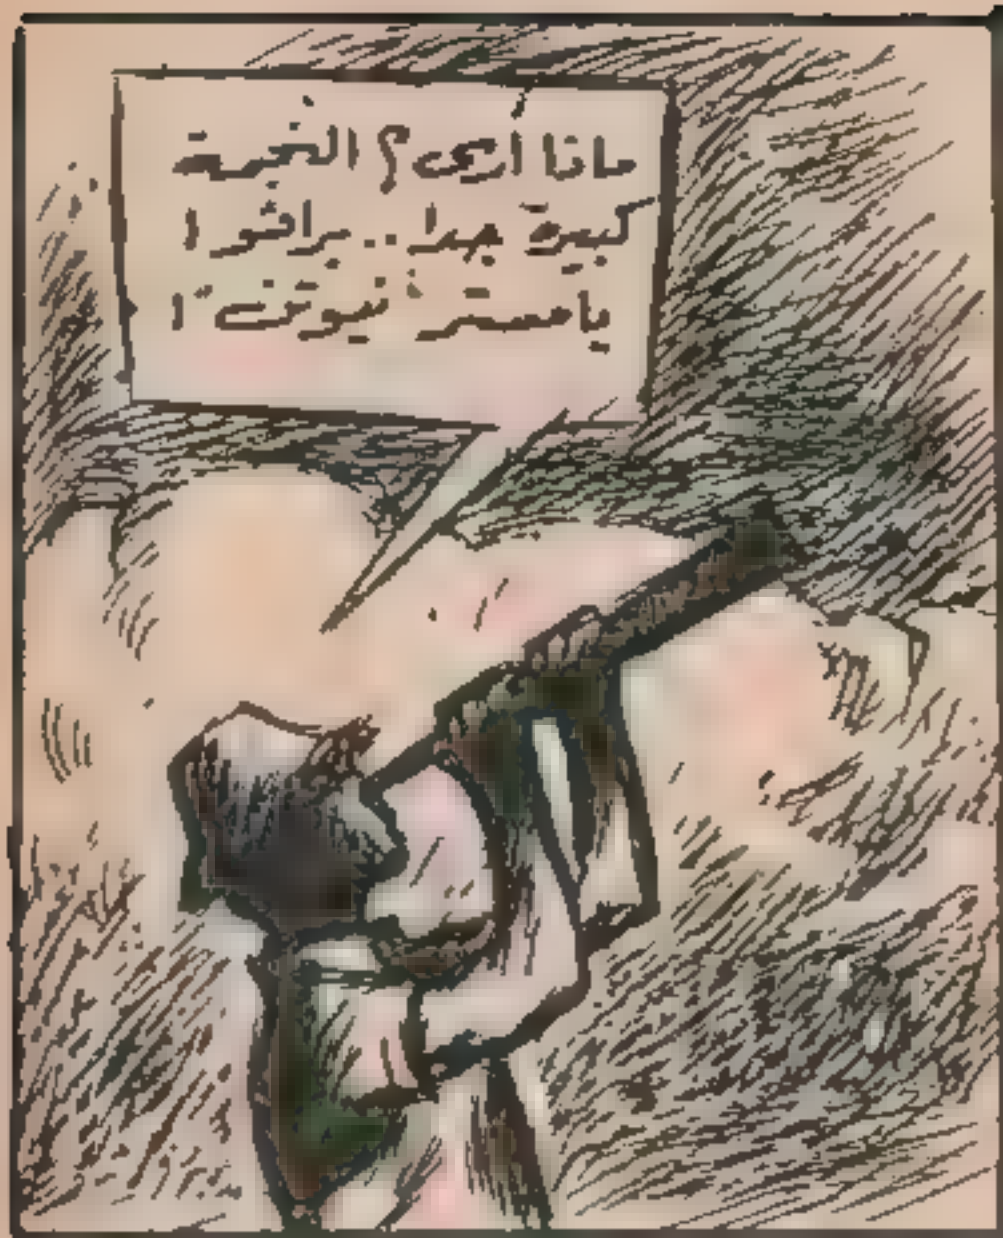 ماذا أرى؟ النجمة
كبيرة جدا.. برافو!
يا مستر نيوتن!